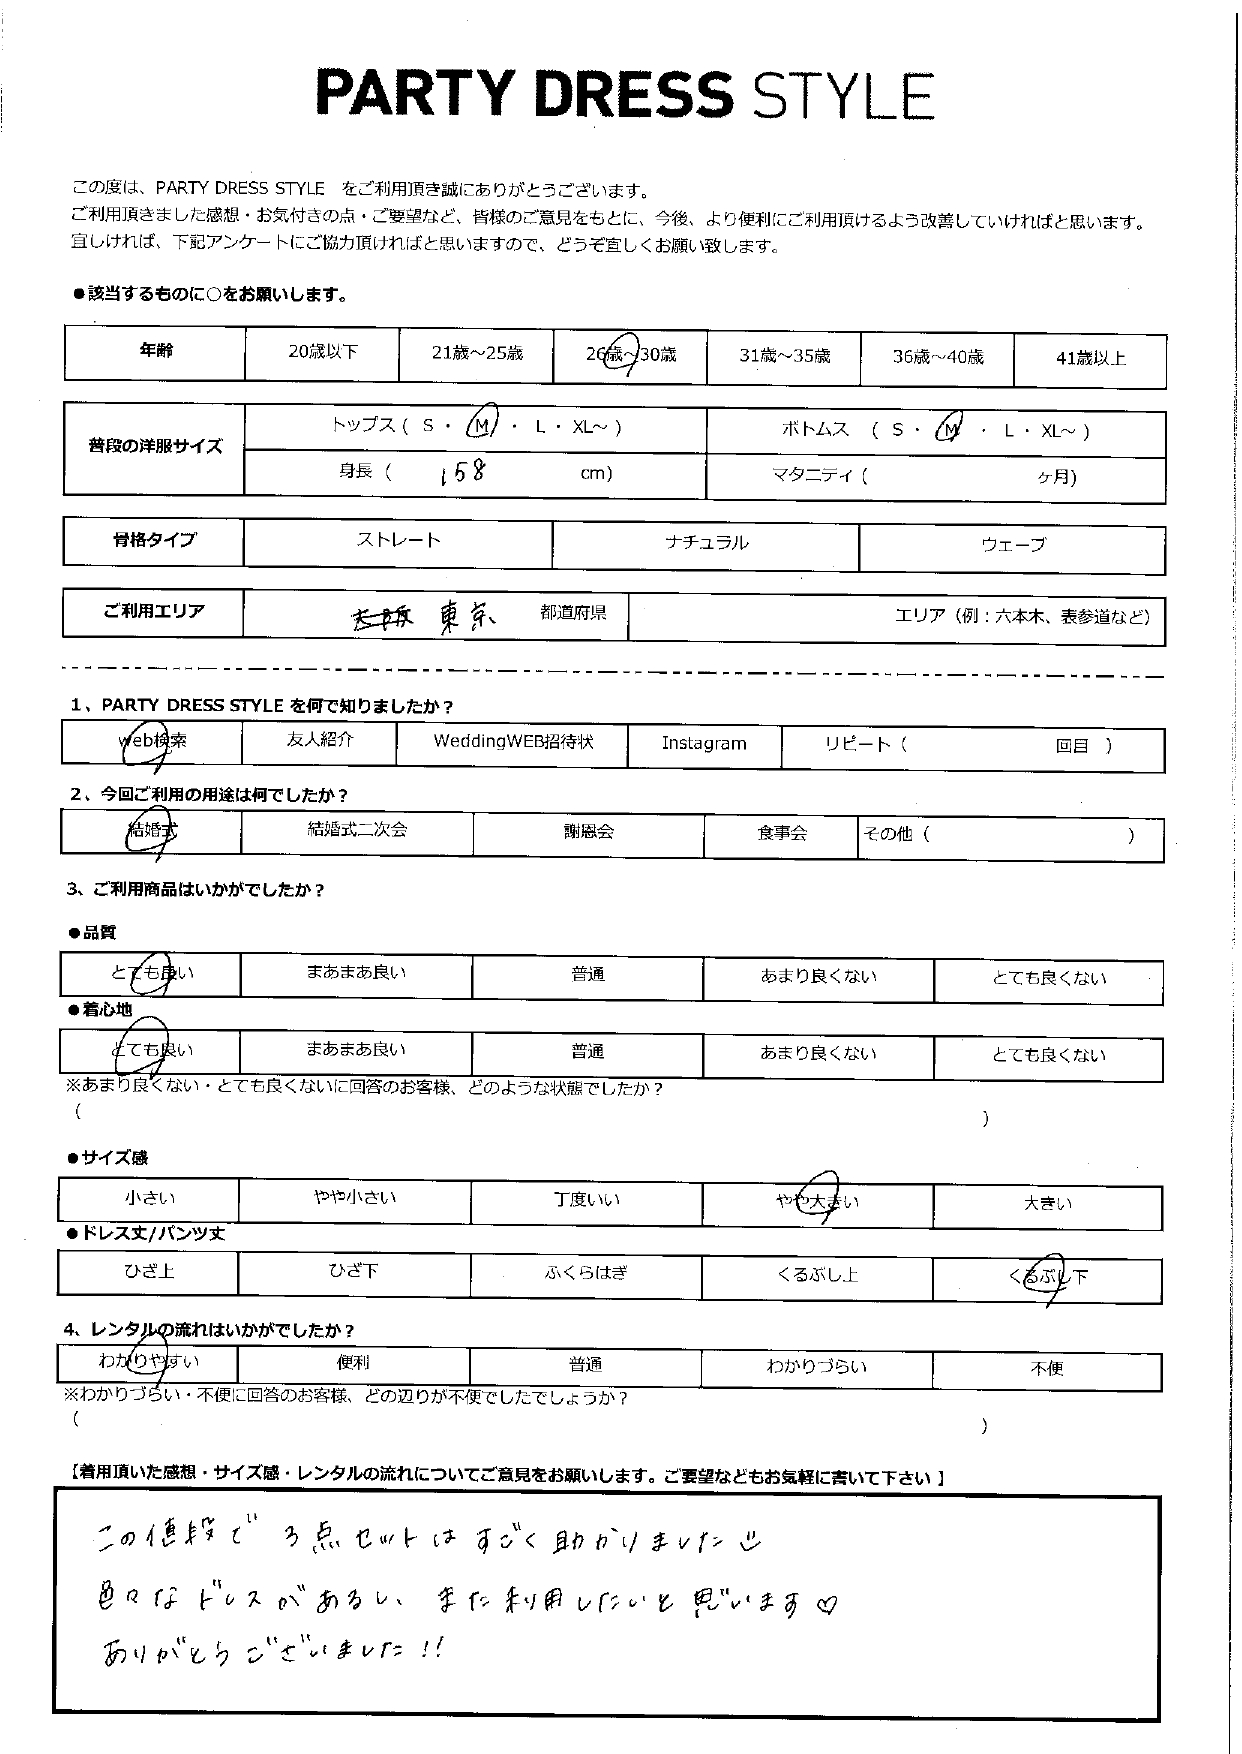 PARTY DRESS STYLE
この度は、PARTY DRESS STYLE をご利用頂き誠にありがとうございます。
ご利用頂きました感想・お気付きの点・ご要望など、皆様のご意見をもとに、今後、より便利にご利用頂けるよう改善していければと思います。
宜しければ、下記アンケートにご協力頂ければと思いますので、どうぞ宜しくお願い致します。
●該当するものに○をお願いします。
年齢 20歳以下 21歳～25歳 26歳～30歳 31歳～35歳 36歳～40歳 41歳以上
普段の洋服サイズ トップス ( S ・ M ・ L ・ XL～ ) ボトムス ( S ・ M ・ L ・ XL～ )
身長 ( 158 cm) マタニティ ( ヶ月)
骨格タイプ ストレート ナチュラル ウェーブ
ご利用エリア 東京 都道府県 エリア（例：六本木、表参道など）
1、PARTY DRESS STYLE を何で知りましたか？
web検索 友人紹介 WeddingWEB招待状 Instagram リピート（ 回目 ）
2、今回ご利用の用途は何でしたか？
結婚式 結婚式二次会 謝恩会 食事会 その他（ ）
3、ご利用商品はいかがでしたか？
●品質
とても良い まあまあ良い 普通 あまり良くない とても良くない
●着心地
とても良い まあまあ良い 普通 あまり良くない とても良くない
※あまり良くない・とても良くないに回答のお客様、どのような状態でしたか？
( )
●サイズ感
小さい やや小さい 丁度いい やや大きい 大きい
●ドレス丈/パンツ丈
ひざ上 ひざ下 ふくらはぎ くるぶし上 くるぶし下
4、レンタルの流れはいかがでしたか？
わかりやすい 便利 普通 わかりづらい 不便
※わかりづらい・不便に回答のお客様、どの辺りが不便でしたでしょうか？
( )
【着用頂いた感想・サイズ感・レンタルの流れについてご意見をお願いします。ご要望などもお気軽に書いて下さい 】
この値段で 3点セットは すごく助かりました☺
色々なドレスがあるし、また利用したいと思います♡
ありがとうございました!!